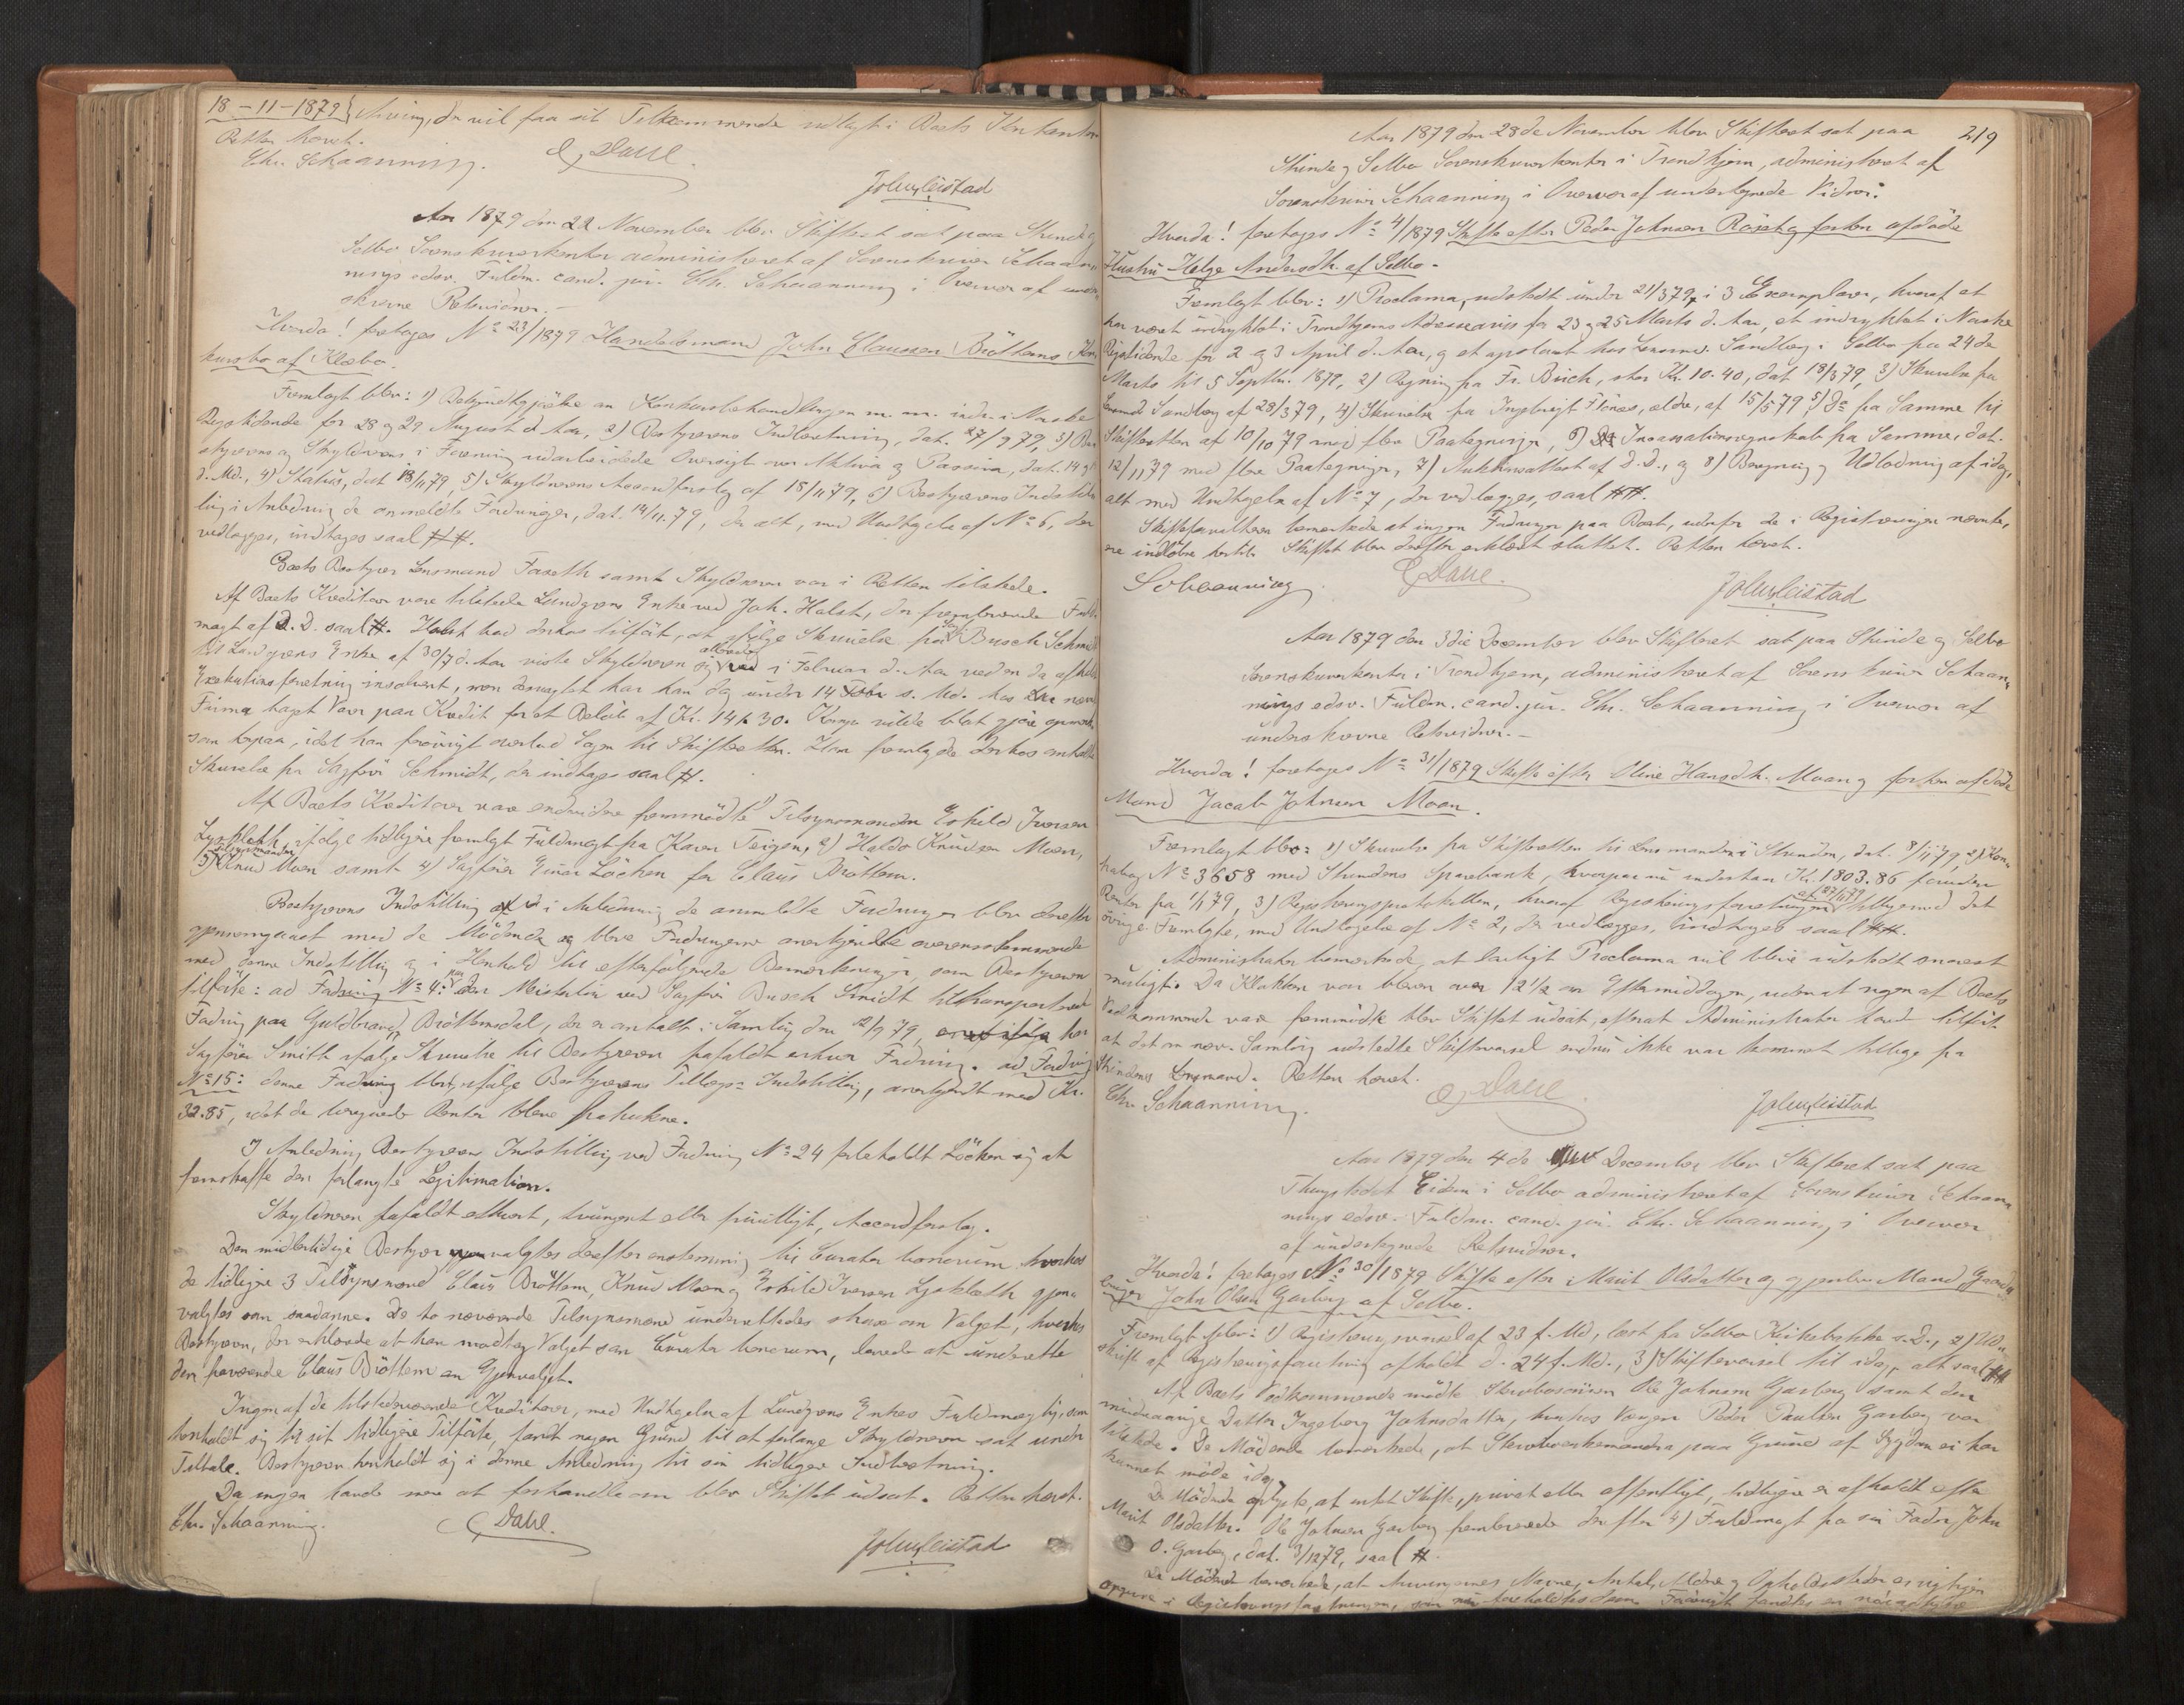 18-11-1879 Arving, der vil faa sit Tilkommende udlagt i Boets
Retten hævet.
Chr. Schaanning. E. Dahl.
John Leistad
Aar 1879 den 22 November blev Skifteret sat paa Strinde og
Selbo Sorenskriverkontor administreret af Sorenskriver Schaan-
nings edsv. Fuldm. cand. jur. Chr. Schaanning i Overvær af under-
skrevne Retsvidner.-
Hvorda! foretoges No 23/1879 Handelsmand John Claussen Bröttems Kon-
kursbo af Klæbo.
Fremlagt blev: 1) Bekjendtgjörelse om Konkursbehandlingen m. m. indr. i Norske
Rigstidende for 28 og 29 August d. Aar, 2) Bestyrerens Indberetning, dat. 27/9 79, 3) Be-
styrerens og Skyldnerens i Forening udarbeidede Oversigt over Aktiva og Passiva, dat. 14
d. Md., 4) Status, dat 18/11 79, 5) Skyldnerens Accordforslag af 18/11 79, 6) Bestyrerens Indstil-
ling i Anledning de anmeldte Fordringer, dat. 14/11 79, der alt, med Undtagelse af No 6, der
vedlægges, indtages saal ##.
Boets Bestyrer Lensmand Faseth samt Skyldneren var i Retten tilstede.
Af Boets Kreditorer vare tilstede Lundgrens Enke ved Joh. Holst, der fremleverede Fuld-
magt af D. D. saal #. Holst bad derhos tilfört, at ifølge Skrivelse fra Sagf Busch Schmidt
til Lundgrens Enke af 30/7 d. Aar viste Skyldneren sig allerede i Februar d. Aar ved en da afholdt
Exekutionsforretning insolvent, men desuagtet har han dog under 14 Febr s. Md. hos
Firma taget Varer paa Kredit for et Belöb af Kr. 141. 30. vilde blot gjöre opmærk-
som herpaa, idet han forövrigt overlod Sagen til Skifteretten. Han fremlagde derhos omhandlede
Skrivelse fra Sagförer Schmidt, der indtages saal #.
Af Boets Kreditorer vare endvidere fremmödte 1) Tilsynsmanden Eskild Iversen
Lysklæth, ifølge tidligere fremlagt Fuldmagt fra Karen Teigen, 2) Haldo Knudsen Moen,
3) tilsynsmanden Knud Moen samt 4) Sagförer Einar Löchen for Claus Bröttem.
Bestyrerens Indstilling i Anledning de anmeldte Fordringer blev derefter
gjennemgaaet med de Mödende og bleve Fordringerne anerkjendte overensstemmende
med denne Indstilling og i Henhold til efterfølgende Bemærkninger, som Bestyreren
tilförte: ad Fordring No 4: den ved Sagförer Busch Smidt tiltransporterede
Fordring paa Guldbrand Bröttemsdal, der er omtalt i Samling den 12/9 79, har
Sagförer Smith ifölge Skrivelse til Bestyreren frafaldt enhver Fordring. ad Fordring
No 15: denne Fordring blev, ifölge Bestyrerens Tillægs-Indstilling, anerkjendt med Kr.
32.85, idet de beregnede Renter bleve fratrukne.
I Anledning Bestyrerens Indstilling ved Fordring No 24 forbeholdt Löchen sig at
fremskaffe den forlangte Legitimation.
Skyldneren frafaldt ethvert, tvungent eller frivilligt, Accordforslag.
Den midlertidige Bestyrer valgtes derefter enstemmig til Curator bonorum hvorhos
de tidligere 3 Tilsynsmænd Claus Bröttem, Knud Moen og Eskild Iversen Lysklæth gjen-
valgtes som saadanne. De to nærværende Tilsynsmænd underrettedes strax om Valget, hvorhos
Bestyreren, der erklærede at han modtog Valget som Curator bonorum, lovede at underrette
den fraværende Claus Bröttem om Gjenvalget.
Ingen af de tilstedeværende Kreditorer, med Undtagelse af Lundgrens Enkes Fuldmægtig, som
henholdt sig til sit tidligere Tilförte, fandt nogen Grund til at forlange Skyldneren sat under
Tiltale. Bestyreren henholdt sig i denne Anledning til sin tidligere Indberetning.
Da ingen havde mere at forhandle om blev Skiftet udsat. Retten hævet.
Chr. Schaanning. E. Dahl.
John Leistad
219
Aar 1879 den 28de November blev Skifteret sat paa
Strinde og Selbo Sorenskriverkontor i Trondhjem, administreret af
Sorenskriver Schaanning i Overvær af undertegnede Vidner:
Hvorda! foretoges No 4/1879 Skifte efter Peder Johnsen Röset og forhen afdöde
Hustru Helge Andersdtr. af Selbo.
Fremlagt blev: 1) Proclama, udstedt under 21/3 79, i 3 Exemplarer, hvoraf et
har været indrykket i Trondhjems Adresseavis for 23 og 25 Marts d. Aar, et indrykket i Norske
Rigstidende for 2 og 3 April d. Aar, og et opslaaet hos Lensmd. Sandberg i Selbo fra 24de
Marts til 5 Septbr. 1879, 2) Regning fra Fr. Brich, stor Kr. 10.40, dat 18/3 79, 3) Skrivelse fra
Lensmd Sandberg af 28/3 79, 4) Skrivelse fra Ingebrigt Flönes, ældre, af 15/5 79, 5) Do fra Samme til
Skifteretten af 10/10 79 med flere Paategninger, 6) Incassationsregnskab fra Samme, dat.
12/11 79 med flere Paategninger, 7) Auktionsattest af d. D., og 8) Beregning og Udlodning af idag,
alt med Undtagelse af No 7, der vedlægges, saal ##.
Skifteforvalteren bemærkede at ingen Fordringer paa Boet, udenfor de i Registreringen nævnte,
ere indløbne hertil. Skiftet blev derefter erklæret sluttet. Retten hævet.
Schaanning E. Dahl. John Leistad
Aar 1879 den 3die December blev Skifteret sat paa Strinde og Selbo
Sorenskriverkontor i Trondhjem, administreret af Sorenskriver Schaan-
nings edsv. Fuldm. cand. jur. Chr. Schaanning i Overvær af
underskrevne Retsvidner.-
Hvorda! foretoges No 31/1879 Skifte efter Oline Hansdtr. Moan og forhen afdöde
Mand Jacob Johnsen Moan.
Fremlagt blev: 1) Skrivelse fra Skifteretten til Lensmanden i Strinden, dat. 8/11 79, 2) Kon-
trabog No 3658 med Strindens Sparebank, hvorpaa nu indestaar Kr. 1803.86 foruden
Renter fra 1/1 79, 3) Registreringsprotokollen, hvoraf Registreringsforretningen af 27/11 79 tilligemed det
övrige Fremlagte, med Undtagelse af No 2, der vedlægges, indtages saal ##.
Administrator bemærkede, at lovligt Proclama vil blive udstedt snarest
muligt. Da Klokken var bleven over 12 1/2 om Eftermiddagen, uden at nogen af Boets
Vedkommende var fremmödt blev Skiftet udsat, efterat Administrator havde tilfört
at det nev. Samling udstedte Skiftevarsel endnu ikke var kommet tilbage fra
Strindens Lensmand. Retten hævet.
Chr. Schaanning. E. Dahl John Leistad
Aar 1879 den 4de December blev Skifteret sat paa
Thingstedet Eidem i Selbo administreret af Sorenskriver Schaan-
nings edsv. Fuldm. cand. jur. Chr. Schaanning i Overvær
af undertegnede Retsvidner.
Hvorda! foretoges No 30/1879 Skifte efter Marit Olsdatter og gjenlev. Mand, Gaard-
bruger John Olsen Garberg af Selbo.
Fremlagt blev: 1) Registreringsvarsel af 23 f. Md, læst fra Selbo Kirkebakke s. D., 2) Ud-
skrift af Registreringsforretning afholdt d. 24 f. Md., 3) Skiftevarsel til idag, alt saal ##
Af Boets Vedkommende mödte Stervbosönnen Ole Johnsen Garberg samt den
mindreaarige Datter Ingeborg Johnsdatter, hvorhos Værgen Peder Paulsen Garberg var
tilstede. De Mödende bemærkede, at Stervboenkemanden paa Grund af Sygdom ei har
kunnet möde idag.
De Mödende oplyste, at intet Skifte, privat eller offentligt, tidligere er afholdt efter
Marit Olsdatter. Ole Johnsen Garberg fremleverede derefter 4) Fuldmagt fra sin Fader John
O. Garberg, dat. 3/12 79, saal #.
De Mödende bemærkede, at Arvingernes Navne, Antal, Aldre og Opholdssteder er rigtigen
opgivne i Registreringsforretningen, som nu foreholdtes dem. Forövrigt fandtes en nöiagtigere